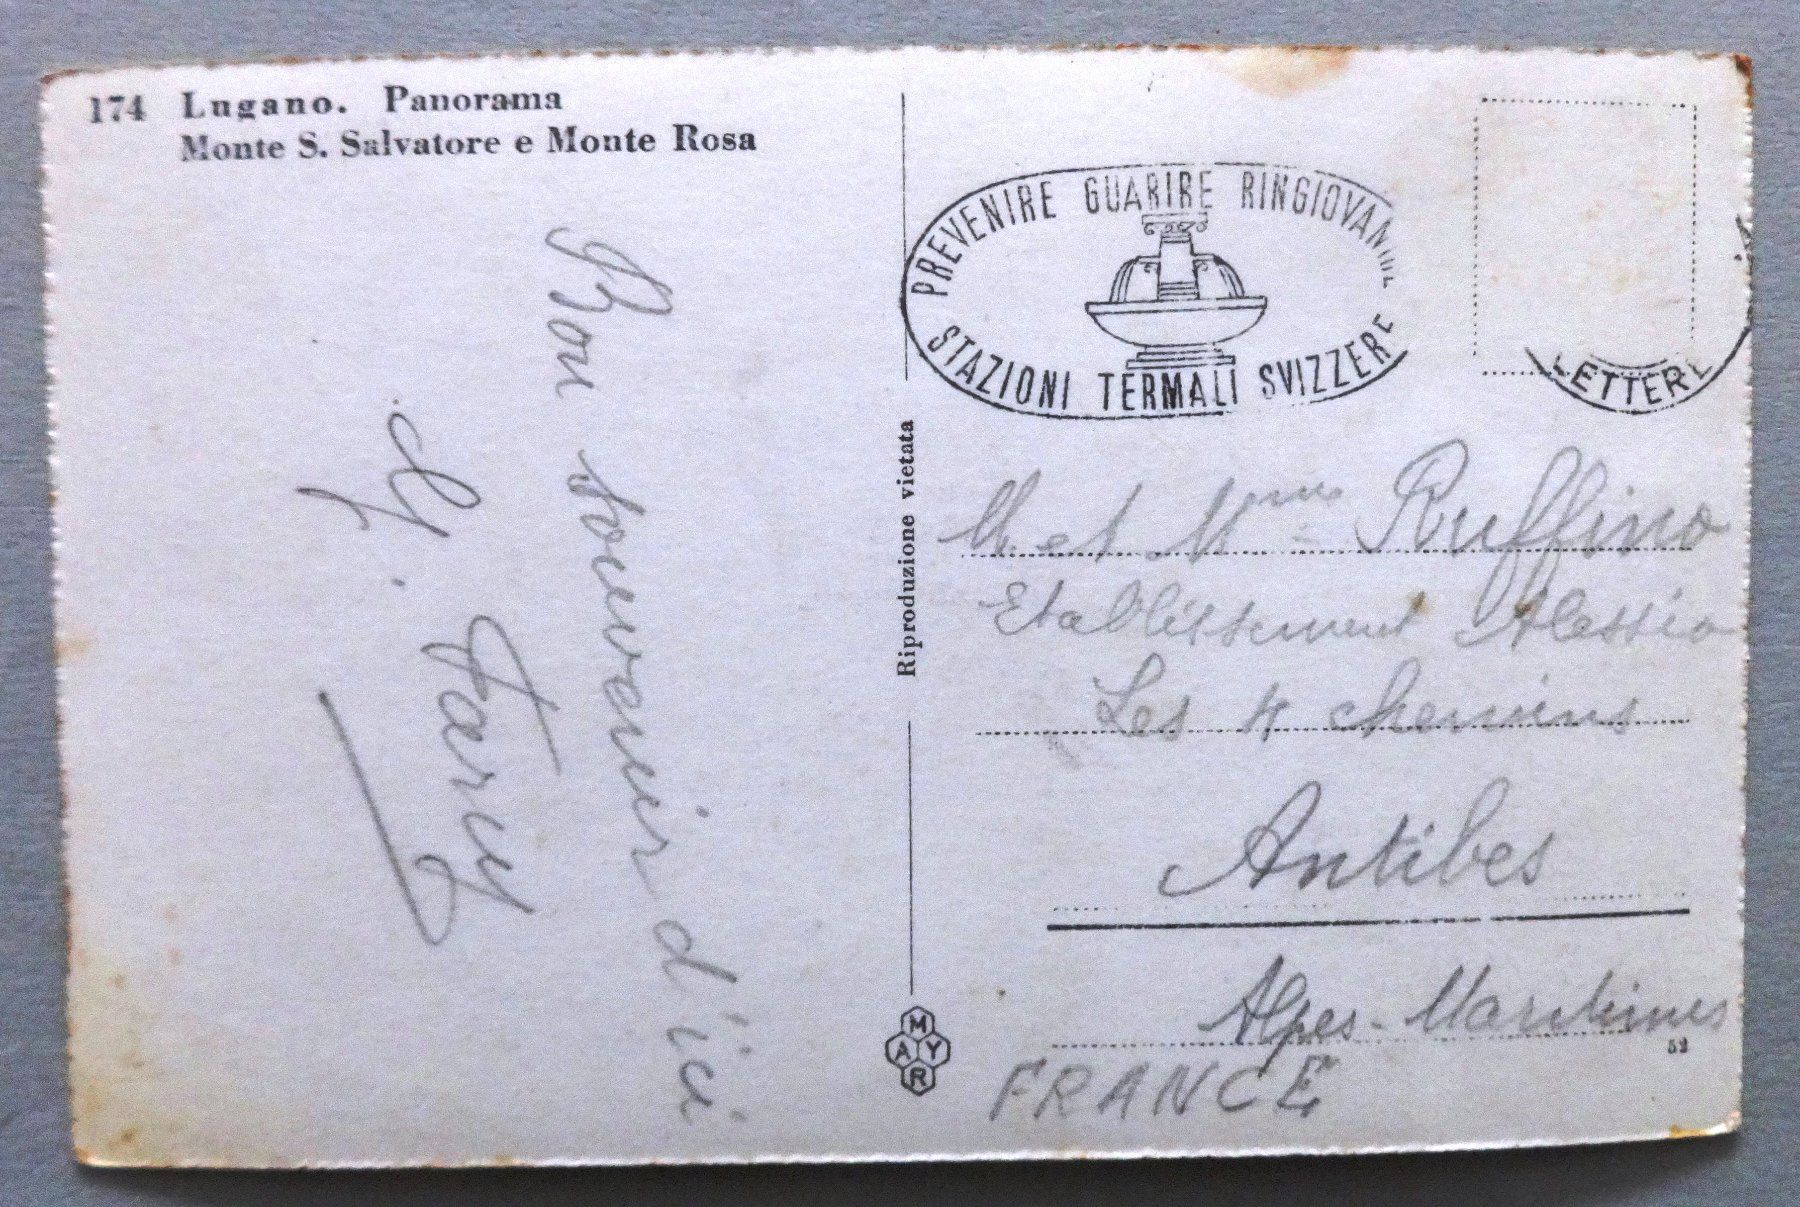 174 Lugano. Panorama
Monte S. Salvatore e Monte Rosa
Bon souvenir d'ici
PREVENIRE GUARIRE RINGIOVANIRE
STAZIONI TERMALI SVIZZERE
LETTERE
Riproduzione vietata
M. et Mme Ruffino
Etablissement Alessio
Les 4 chemins
Antibes
Alpes-Maritimes
FRANCE
52
MAYR